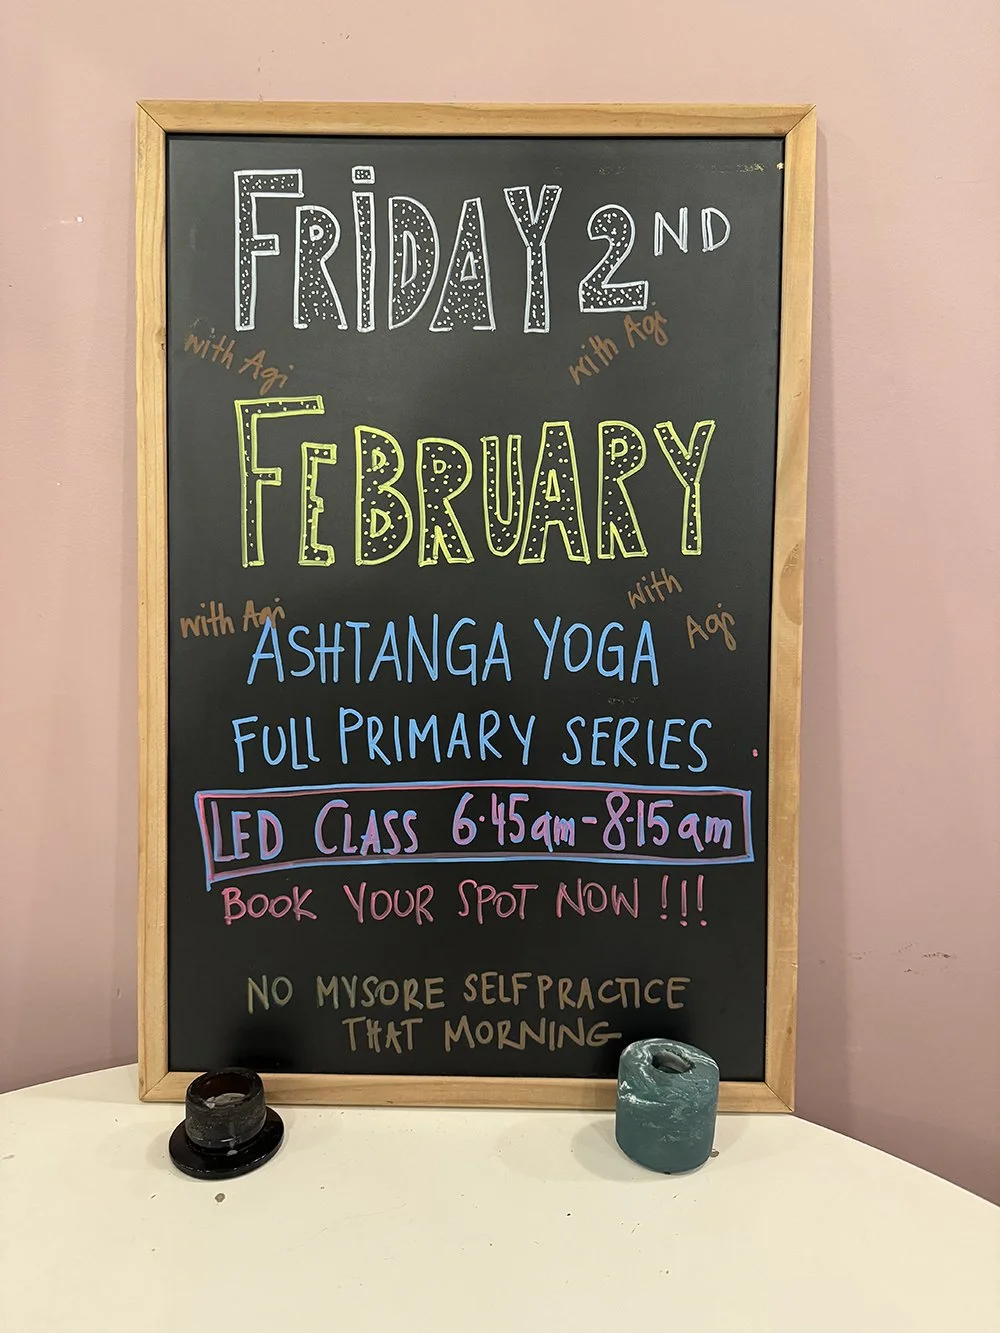 FRIDAY 2ND
with Agi
with Agi
FEBRUARY
with Agi
with
Agi
ASHTANGA YOGA
FULL PRIMARY SERIES
LED CLASS 6·45am-8·15am
BOOK YOUR SPOT NOW !!!
NO MYSORE SELF PRACTICE
THAT MORNING